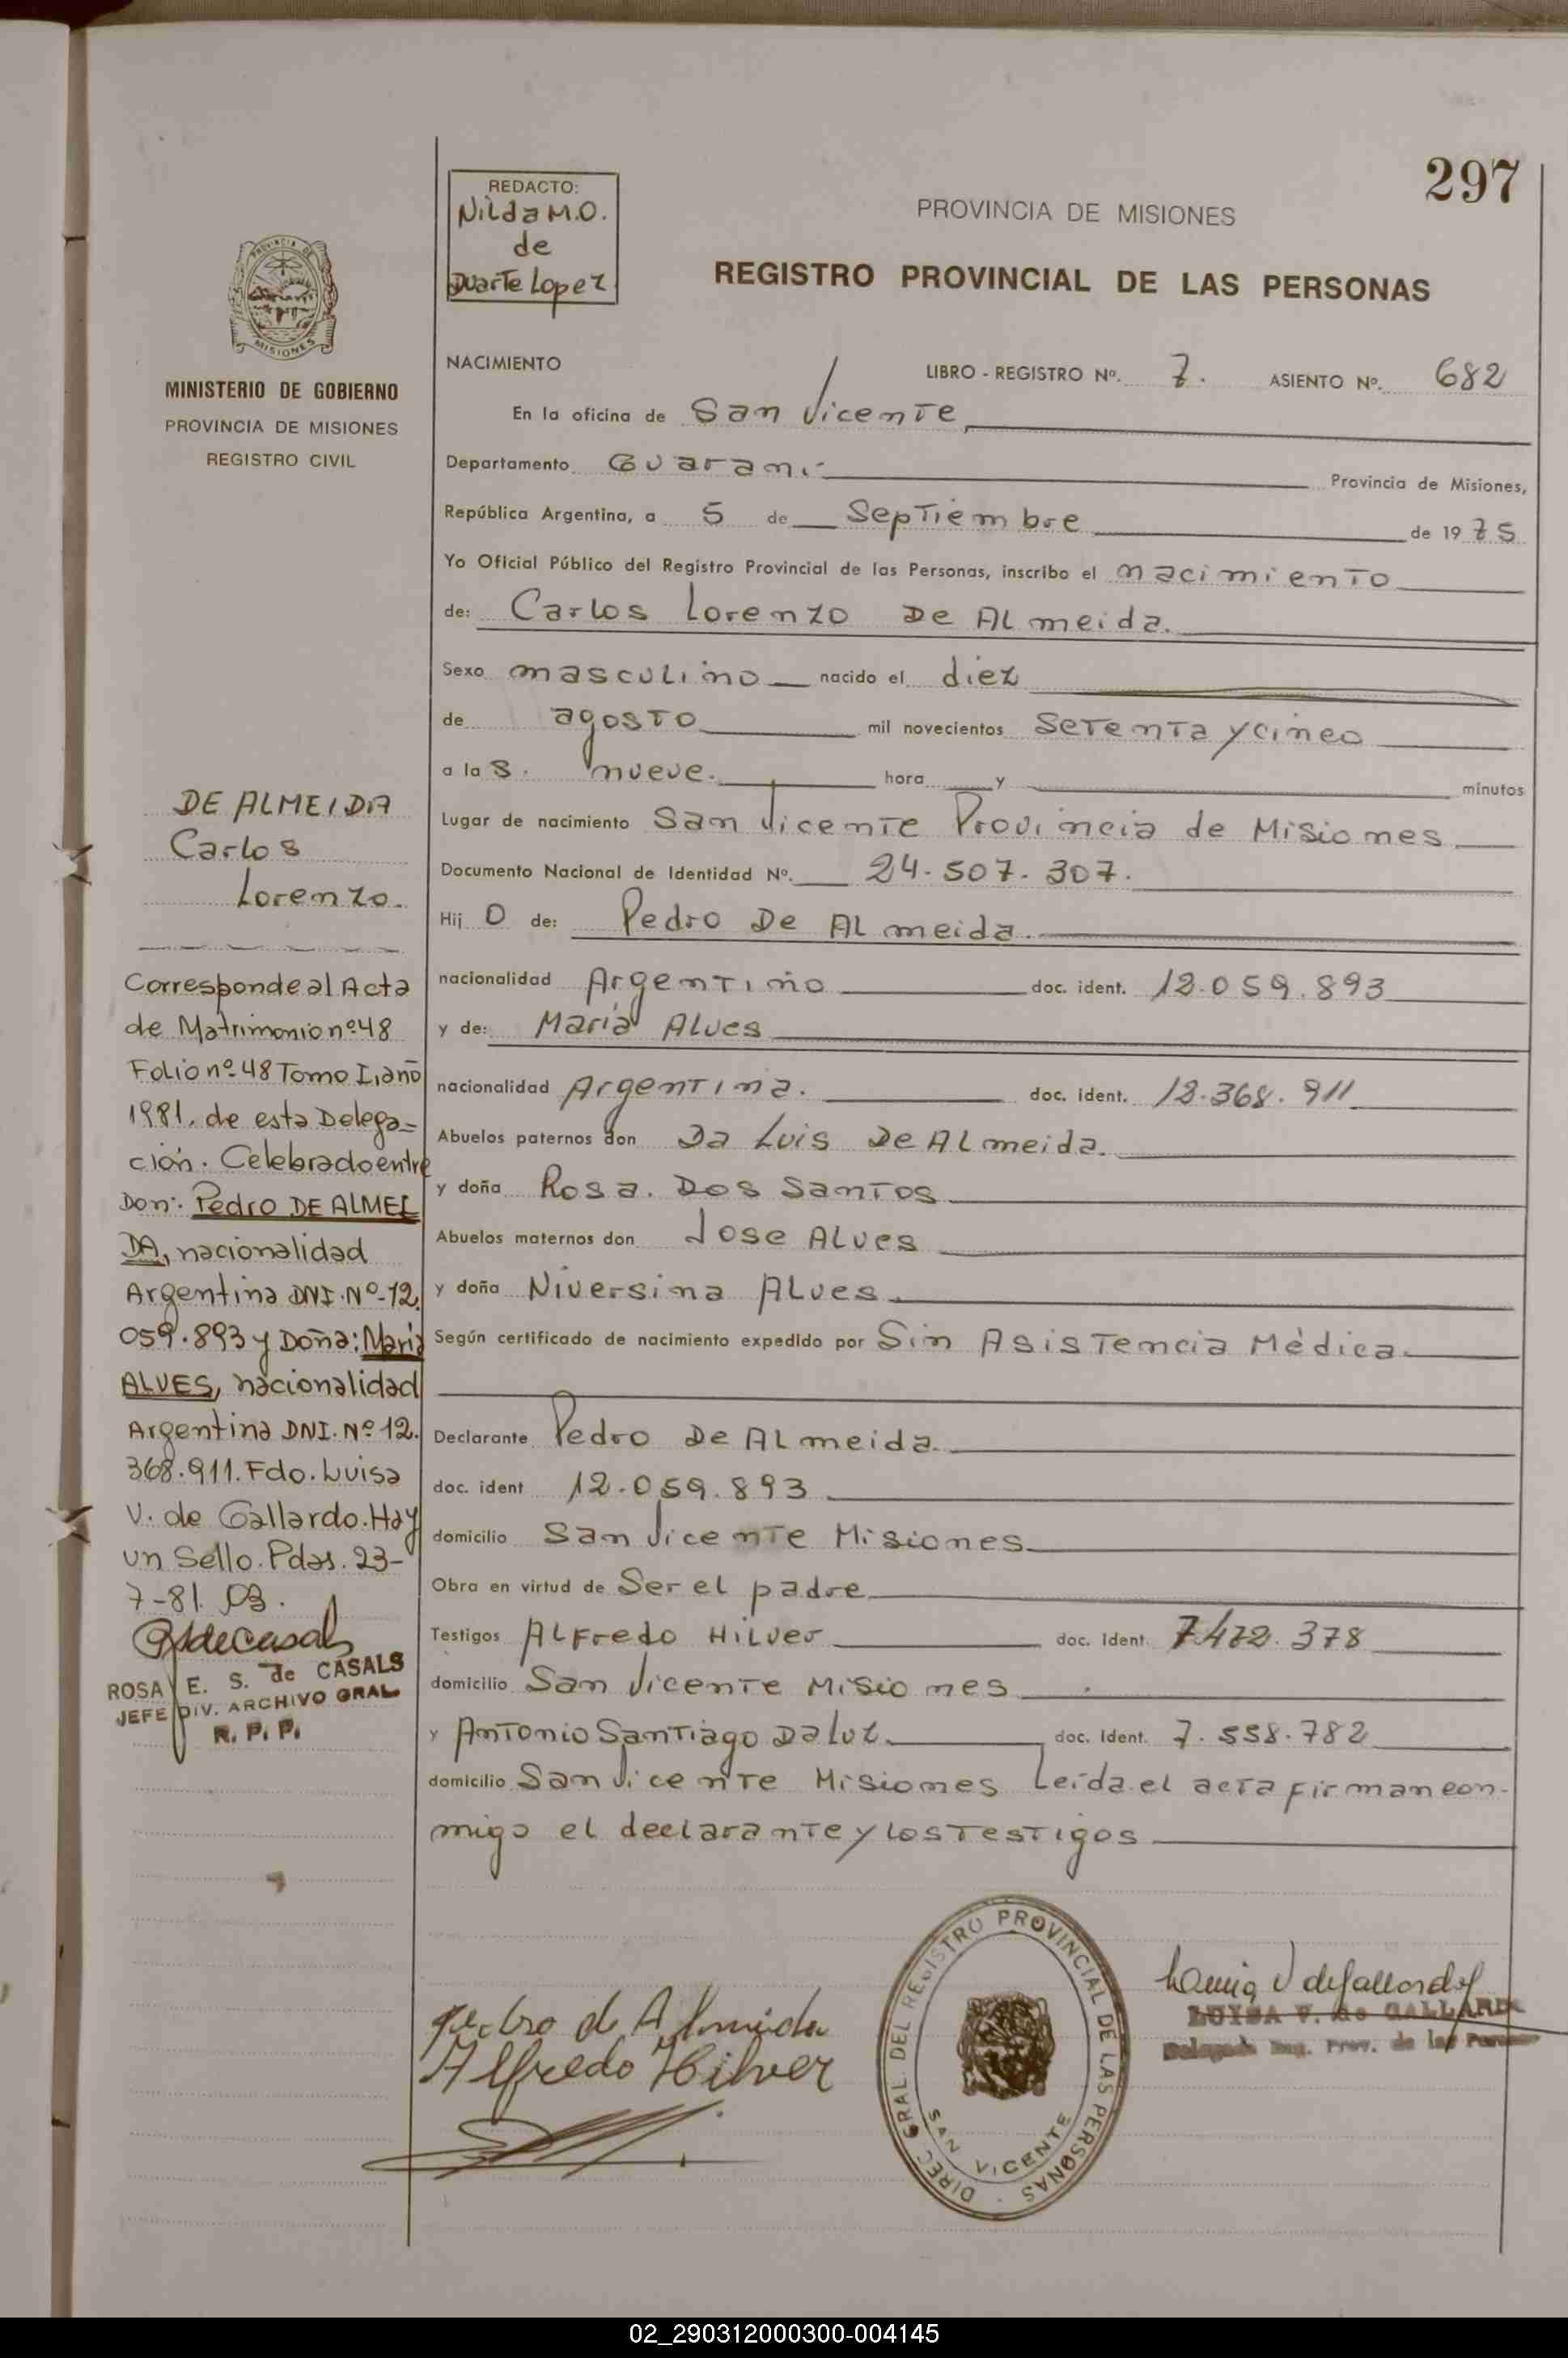 297
REDACTO:
Nilda M.O.
de
Duarte Lopez
PROVINCIA DE MISIONES
REGISTRO PROVINCIAL DE LAS PERSONAS
PROVINCIA DE
MISIONES
MINISTERIO DE GOBIERNO
PROVINCIA DE MISIONES
REGISTRO CIVIL
NACIMIENTO LIBRO - REGISTRO Nº. 7. ASIENTO Nº. 682
En la oficina de San Vicente,
Departamento Guaraní Provincia de Misiones,
República Argentina, a 5 de Septiembre de 1975
Yo Oficial Público del Registro Provincial de las Personas, inscribo el nacimiento
de: Carlos Lorenzo De Almeida.
Sexo masculino nacido el diez
de agosto mil novecientos setenta y cinco
a la s. nueve. hora y minutos
Lugar de nacimiento San Vicente Provincia de Misiones
Documento Nacional de Identidad Nº. 24.507.307.
Hij o de: Pedro De Almeida.
nacionalidad Argentino doc. ident. 12.059.893
y de: María Alves
nacionalidad Argentina. doc. ident. 12.368.911
Abuelos paternos don Da Luis De Almeida.
y doña Rosa. Dos Santos
Abuelos maternos don Jose Alves
y doña Niversina Alves.
Según certificado de nacimiento expedido por Sin Asistencia Médica
Declarante Pedro De Almeida.
doc. ident 12.059.893
domicilio San Vicente Misiones
Obra en virtud de Ser el padre
Testigos Alfredo Hilver doc. Ident. 7.472.378
domicilio San Vicente Misiones
y Antonio Santiago Da luz. doc. Ident. 7.558.782
domicilio San Vicente Misiones Leída el acta firman con-
migo el declarante y los testigos
DE ALMEIDA
Carlos
Lorenzo.
Corresponde al Acta
de Matrimonio nº 48
Folio nº 48 Tomo I, año
1981. de esta Delega=
ción. Celebrado entre
Don: Pedro DE ALMEI
DA, nacionalidad
Argentina DNI. Nº-12.
059.893 y Doña: María
ALVES, nacionalidad
Argentina DNI. Nº 12.
368.911. Fdo. Luisa
V. de Gallardo. Hay
un Sello. Pdas. 23-
7-81.
ROSA E. S. de CASALS
JEFE DIV. ARCHIVO GRAL
R. P. P.
pedro de Almeida
Alfredo Hilver
DIREC GRAL. DEL REGISTRO PROVINCIAL DE LAS PERSONAS
SAN VICENTE
LUISA V. de GALLARDO
Delegada Reg. Prov. de las Personas
02_290312000300-004145